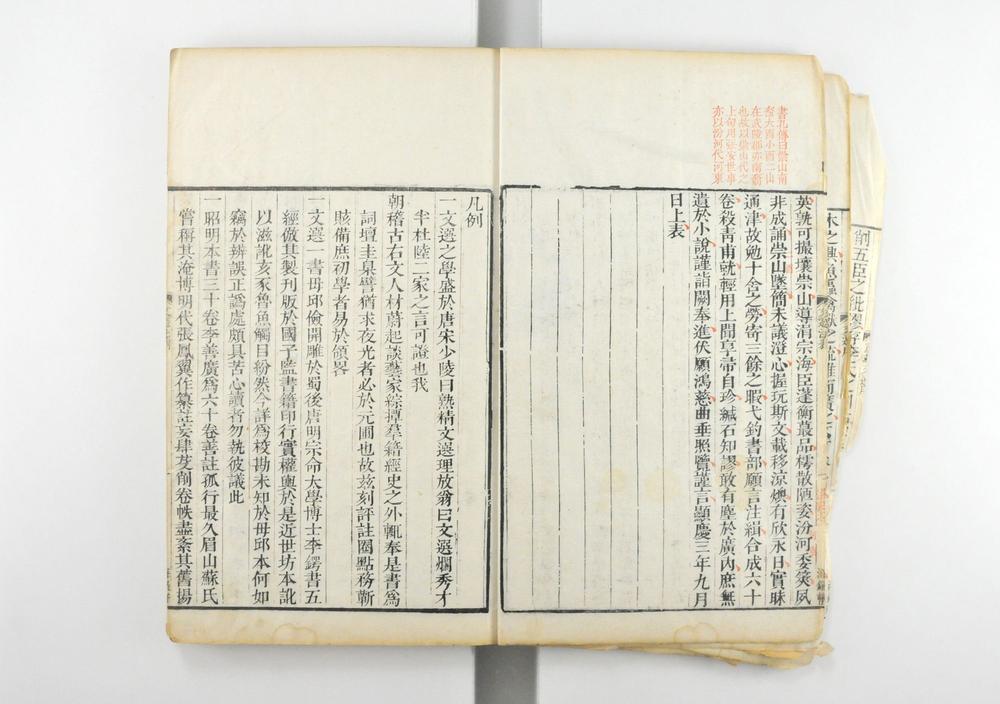 書孔傳曰崇山南
裔大酉小酉二山
在武陵郡亦南裔
也故以崇山代之
上句用張安世事
亦以汾河代河東
英孰可撮壤崇山導涓宗海臣蓬衡蕞品樗散陋姿汾河委筴夙
非成誦崇山墜簡未議澄心握玩斯文載移涼燠有欣永日實昧
通津故勉十舍之勞寄三餘之暇弋釣書部願言注緝合成六十
卷殺靑甫就輕用上聞享帚自珍緘石知謬敢有塵於廣內庶無
遺於小說謹詣闕奉進伏願鴻慈曲垂照覽謹言顯慶三年九月
日上表
凡例
一文選之學盛於唐宋少陵曰熟精文選理放翁曰文選爛秀才
半杜陸二家之言可證也我
朝稽古右文人材蔚起談藝家綜摶羣籍經史之外輒奉是書爲
詞壇圭臬譬猶求夜光者必於元圃也故玆刻評註圈點務蘄
賅備庶初學者易於領畧
一文選一書毋邱儉開雕於蜀後唐明宗命大學博士李鍔書五
經倣其製刋版於國子監書籍印行實權輿於是近世坊本訛
以滋訛亥豕魯魚觸目紛然今詳爲校勘未知於毋邱本何如
竊於辨誤正譌處頗具苦心讀者勿執彼議此
一昭明本書三十卷李善廣爲六十卷善註孤行最久眉山蘇氏
嘗稱其淹博明代張鳳翼作纂註妄肆芟削卷帙盡紊其舊揚
削五臣之紕繆